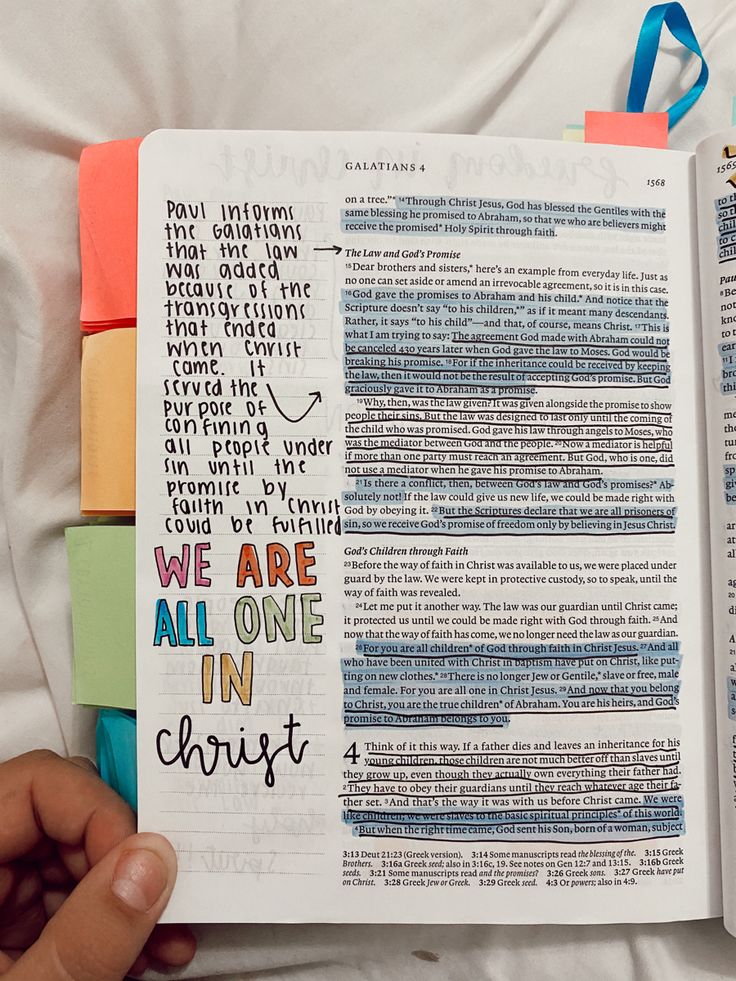 GALATIANS 4
1568
Paul informs
the Galatians
that the law
was added
because of the
transgressions
that ended
when Christ
came. It
served the
purpose of
confining
all people under
sin until the
promise by
faith in Christ
could be fulfilled
WE ARE
ALL ONE
IN
Christ
on a tree.”* ¹⁴Through Christ Jesus, God has blessed the Gentiles with the
same blessing he promised to Abraham, so that we who are believers might
receive the promised* Holy Spirit through faith.
The Law and God’s Promise
¹⁵Dear brothers and sisters,* here’s an example from everyday life. Just as
no one can set aside or amend an irrevocable agreement, so it is in this case.
¹⁶God gave the promises to Abraham and his child.* And notice that the
Scripture doesn’t say “to his children,*” as if it meant many descendants.
Rather, it says “to his child”—and that, of course, means Christ. ¹⁷This is
what I am trying to say: The agreement God made with Abraham could not
be canceled 430 years later when God gave the law to Moses. God would be
breaking his promise. ¹⁸For if the inheritance could be received by keeping
the law, then it would not be the result of accepting God’s promise. But God
graciously gave it to Abraham as a promise.
¹⁹Why, then, was the law given? It was given alongside the promise to show
people their sins. But the law was designed to last only until the coming of
the child who was promised. God gave his law through angels to Moses, who
was the mediator between God and the people. ²⁰Now a mediator is helpful
if more than one party must reach an agreement. But God, who is one, did
not use a mediator when he gave his promise to Abraham.
²¹Is there a conflict, then, between God’s law and God’s promises?* Ab-
solutely not! If the law could give us new life, we could be made right with
God by obeying it. ²²But the Scriptures declare that we are all prisoners of
sin, so we receive God’s promise of freedom only by believing in Jesus Christ.
God’s Children through Faith
²³Before the way of faith in Christ was available to us, we were placed under
guard by the law. We were kept in protective custody, so to speak, until the
way of faith was revealed.
²⁴Let me put it another way. The law was our guardian until Christ came;
it protected us until we could be made right with God through faith. ²⁵And
now that the way of faith has come, we no longer need the law as our guardian.
²⁶For you are all children* of God through faith in Christ Jesus. ²⁷And all
who have been united with Christ in baptism have put on Christ, like put-
ting on new clothes.* ²⁸There is no longer Jew or Gentile,* slave or free, male
and female. For you are all one in Christ Jesus. ²⁹And now that you belong
to Christ, you are the true children* of Abraham. You are his heirs, and God’s
promise to Abraham belongs to you.
4 Think of it this way. If a father dies and leaves an inheritance for his
young children, those children are not much better off than slaves until
they grow up, even though they actually own everything their father had.
²They have to obey their guardians until they reach whatever age their fa-
ther set. ³And that’s the way it was with us before Christ came. We were
like children; we were slaves to the basic spiritual principles* of this world.
⁴But when the right time came, God sent his Son, born of a woman, subject
3:13 Deut 21:23 (Greek version). 3:14 Some manuscripts read the blessing of the. 3:15 Greek
Brothers. 3:16a Greek seed; also in 3:16c, 19. See notes on Gen 12:7 and 13:15. 3:16b Greek
seeds. 3:21 Some manuscripts read and the promises? 3:26 Greek sons. 3:27 Greek have put
on Christ. 3:28 Greek Jew or Greek. 3:29 Greek seed. 4:3 Or powers; also in 4:9.